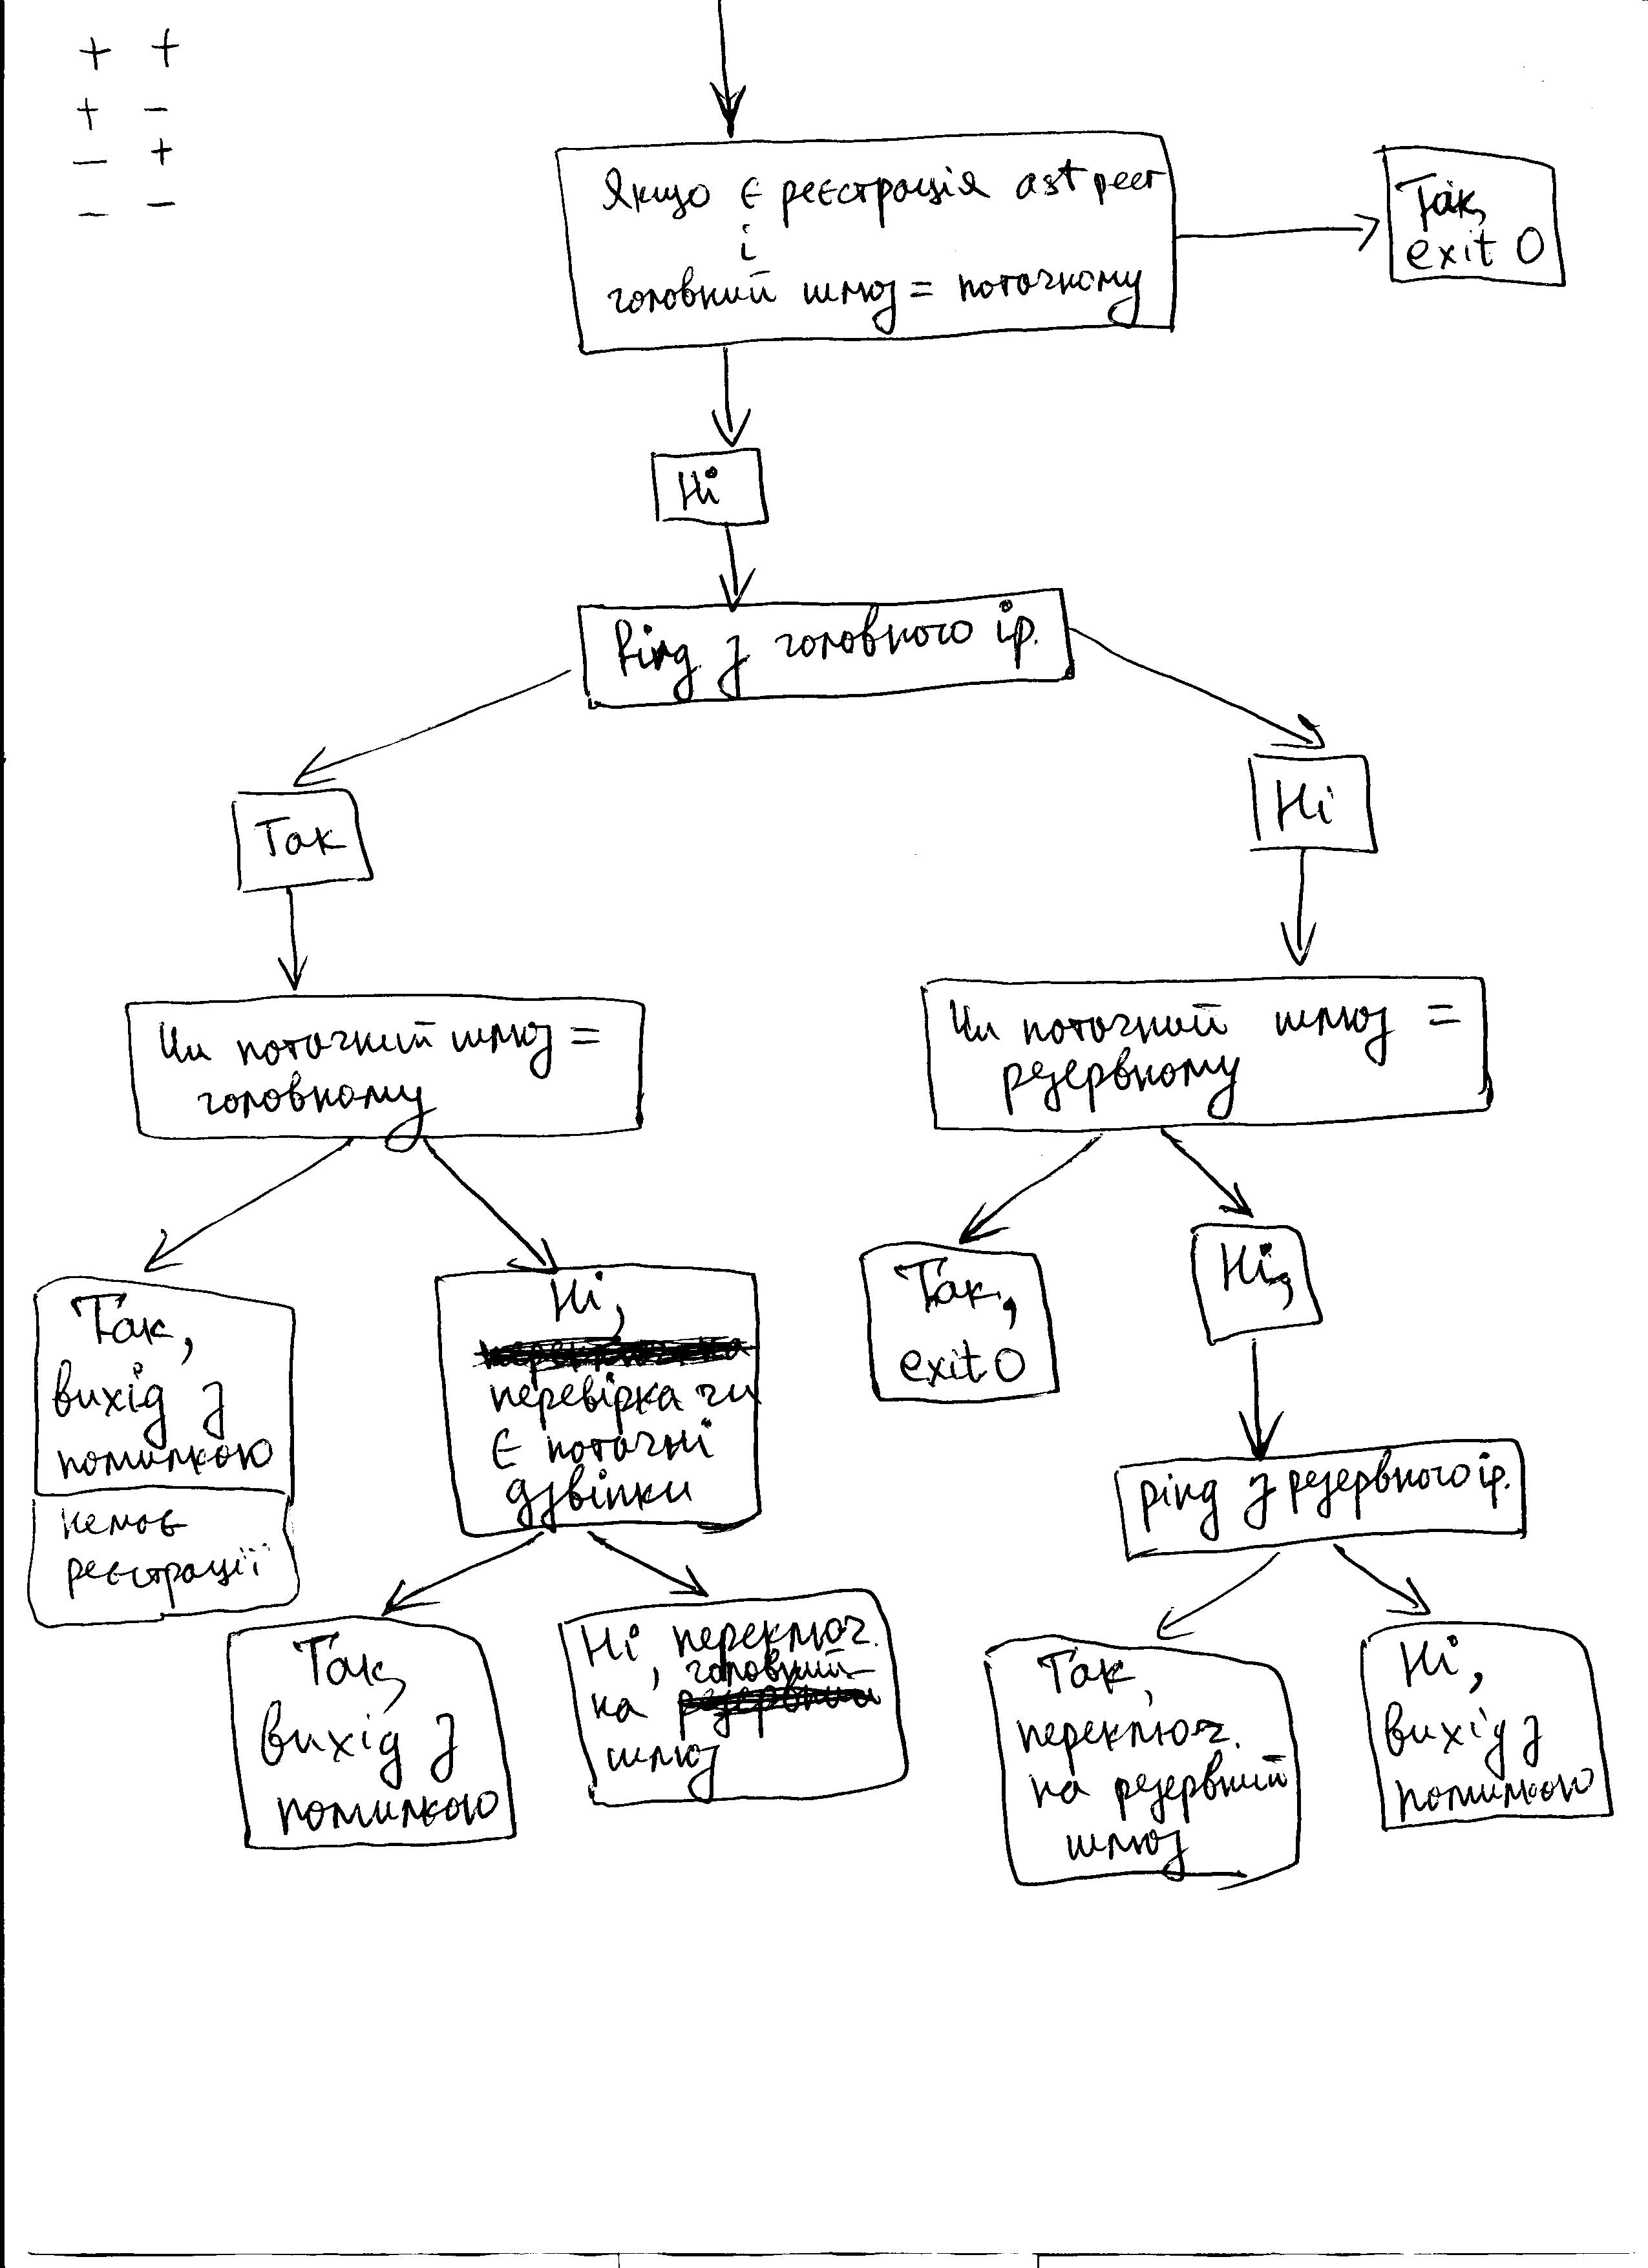 + +
+ -
- +
- -
Якщо є реєстрація ast peer
і
головний шлюз = поточному
Так,
exit 0
Ні
Ping з головного ip.
Так
Ні
Чи поточний шлюз =
головному
Чи поточний шлюз =
резервному
Так,
вихід з
помилкою
немає
реєстрації
Ні,
перевірка чи
є поточні
дзвінки
Так,
exit 0
Ні,
ping з резервного ip.
Так,
вихід з
помилкою
Ні, переключ.
головний
на резервний
шлюз
Так,
переключ.
на резервний
шлюз
Ні,
вихід з
помилкою